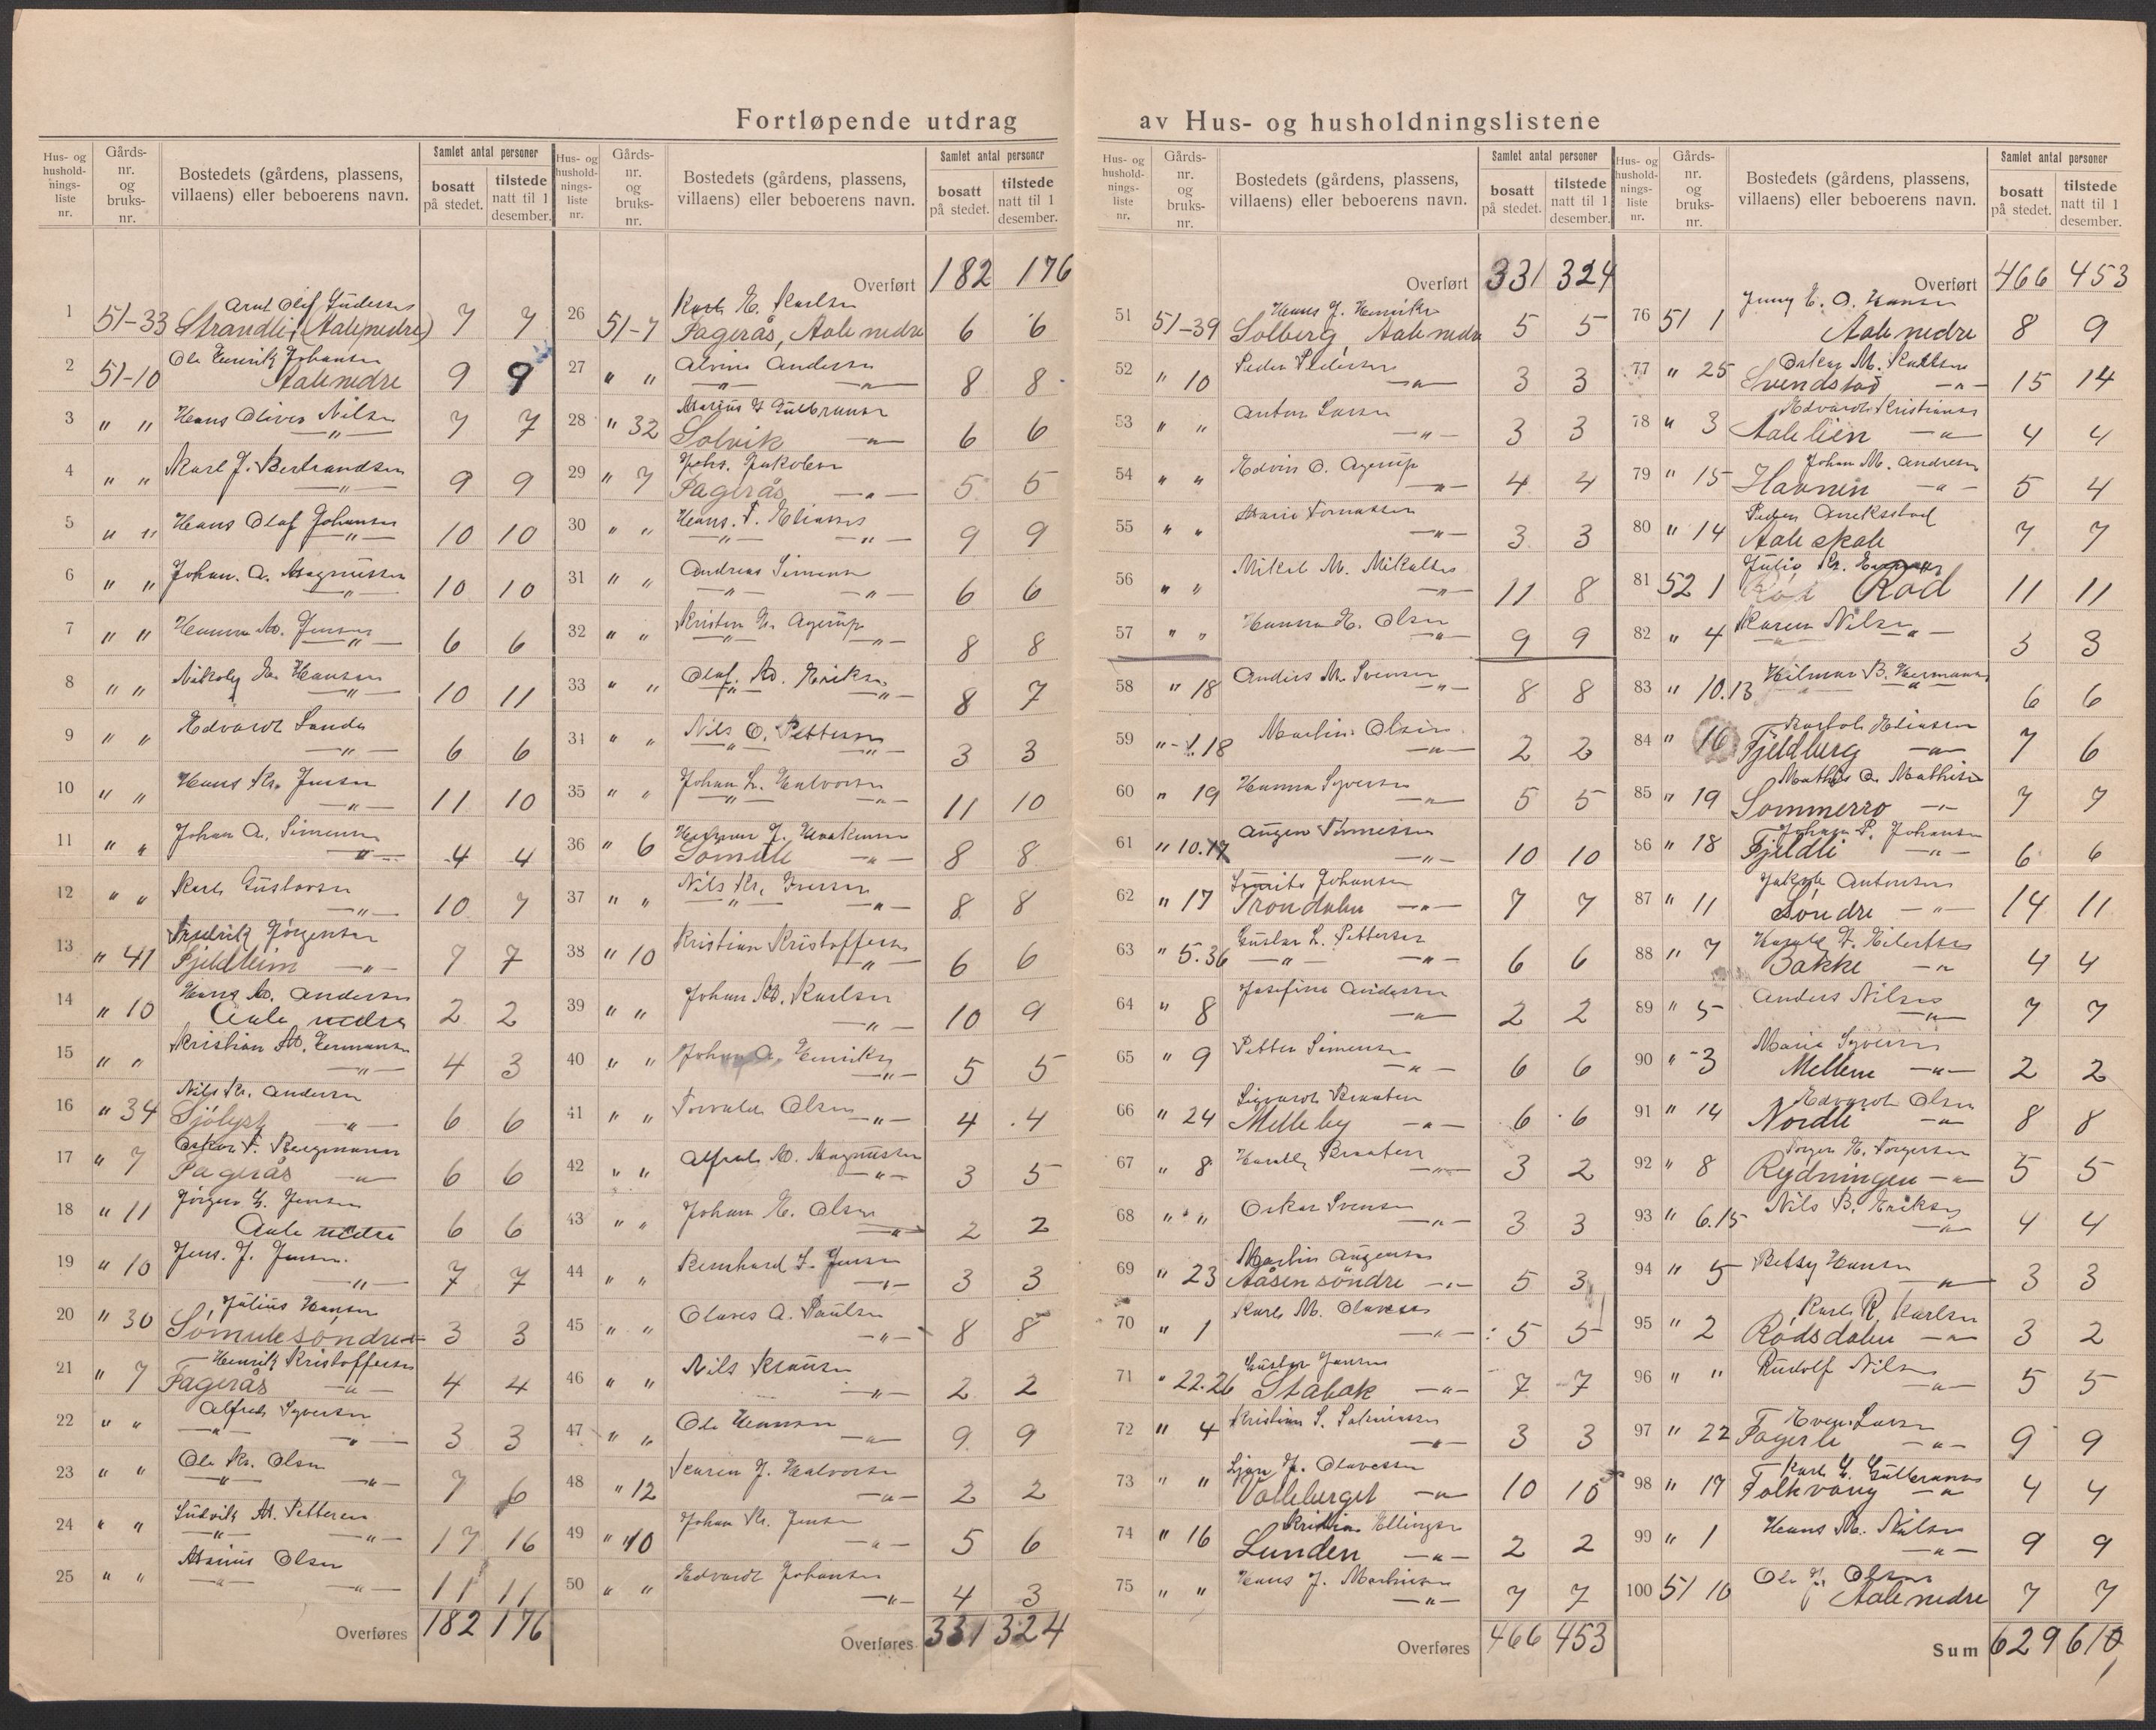 Fortløpende utdrag av Hus- og husholdningslistene
Hus- og hushold-nings-liste nr. Gårds-nr. og bruks-nr. Bostedets (gårdens, plassens, villaens) eller beboerens navn. Samlet antal personer bosatt på stedet. tilstede natt til 1 desember.
1 51-33 Arnt Olaf Gudersen
Strandli (Aale nedre) 7 7
2 51-10 Ole Henrik Johansen
Aale nedre 9 9
3 " " Hans Oliver Nilsen —"— 7 7
4 " " Karl J. Bertrandsen —"— 9 9
5 " " Hans Olaf Johansen —"— 10 10
6 " " Johan A. Magnussen —"— 10 10
7 " " Hanna M. Jensen —"— 6 6
8 " " Nikolay Hansen —"— 10 11
9 " " Edvardt Sande —"— 6 6
10 " " Hans Kr. Jensen —"— 11 10
11 " " Johan A. Simensen —"— 4 4
12 " " Karl Gustavsen —"— 10 7
13 " 41 Fredrik Jörgensen
Fjeldheim —"— 7 7
14 " 10 Hans M. Andersen
Aale nedre 2 2
15 " " Kristian M. Hermansen —"— 4 3
16 " 34 Nils Kr. Andersen
Sjölyst —"— 6 6
17 " 7 Oskar F. Bergmann
Fagerås —"— 6 6
18 " 11 Jörgen G. Jensen
Aale nedre 6 6
19 " 10 Jens J. Jensen —"— 7 7
20 " 30 Julius Hansen
Sömule söndre —"— 3 3
21 " 7 Henrik Kristoffersen
Fagerås —"— 4 4
22 " " Alfred Syversen —"— —"— 3 3
23 " " Ole Kr. Olsen —"— —"— 7 6
24 " " Ludvik M. Pettersen —"— —"— 17 16
25 " " Marius Olsen —"— —"— 11 11
Overføres 182 176
Overført 182 176
26 51-7 Karl E. Karlsen
Fagerås, Aale nedre 6 6
27 " " Alvine Andersen —"— —"— 8 8
28 " 32 Marius Gulbransen
Solvik —"— 6 6
29 " 7 Johs. Jakobsen
Fagerås —"— 5 5
30 " " Hans F. Eliassen —"— —"— 9 9
31 " " Andreas Simensen —"— —"— 6 6
32 " " Kristen Agerup —"— —"— 8 8
33 " " Olaf M. Eriksen —"— —"— 8 7
34 " " Nils O. Pettersen —"— —"— 3 3
35 " " Johan L. Halvorsen —"— —"— 11 10
36 " 6 Herman J. Haakensen
Sömule —"— 8 8
37 " " Nils Kr. Iversen —"— —"— 8 8
38 " 10 Kristian Kristoffersen —"— 6 6
39 " " Johan M. Karlsen —"— 10 9
40 " " Johan A. Henriksen —"— 5 5
41 " " Torvald Olsen —"— 4 4
42 " " Alfred M. Magnussen —"— 3 5
43 " " Johan E. Olsen —"— 2 2
44 " " Bernhard L. Jensen —"— 3 3
45 " " Olaves A. Paulsen —"— 8 8
46 " " Nils Klausen —"— 2 2
47 " " Ole Hansen —"— 9 9
48 " 12 Karen J. Halvorsen —"— 2 2
49 " 10 Johan Kr. Jensen —"— 5 6
50 " " Edvardt Johansen —"— 4 3
Overføres 331 324
Overført 331 324
51 51-39 Hans J. Henriksen
Solberg, Aale nedre 5 5
52 " 10 Peder Pedersen —"— 3 3
53 " " Anton Larsen —"— 3 3
54 " " Edvin O. Agerup —"— 4 4
55 " " Marie Tomassen —"— 3 3
56 " " Mikal M. Mikalsen —"— 11 8
57 " " Hanna H. Olsen —"— 9 9
58 " 18 Anders M. Svensen —"— 8 8
59 " -1.18 Martin Olsen —"— 2 2
60 " 19 Hanna Syversen —"— 5 5
61 " 10.17 Augen Tönnesen —"— 10 10
62 " 17 Johansen
Trondalen —"— 7 7
63 " 5.36 Gustav L. Pettersen —"— —"— 6 6
64 " 8 Josefine Andersen —"— 2 2
65 " 9 Petter Simensen —"— 6 6
66 " 24 Sigvardt Braaten
Melleby —"— 6 6
67 " 8 Harald Braaten —"— 3 2
68 " " Oskar Svensen —"— 3 3
69 " 23 Martin Augensen
Aåsen söndre —"— 5 3
70 " 1 Karl M. Olavesen —"— 5 5
71 " 22.26 Gustav Jansen
Stabak —"— 7 7
72 " 4 Kristian S. Salmiassen —"— 3 3
73 " " J. Olavesen
Valleberget —"— 10 10
74 " 16 Kristian Ellingsen
Lunden —"— 2 2
75 " " Hans J. Martinsen —"— 7 7
Overføres 466 453
Overført 466 453
76 51 1 Jenny E. O. Hansen
Aale nedre 8 9
77 " 25 Oskar M. Karlsen
Svendstad —"— 15 14
78 " 3 Edvardt Kristiansen
Aalelien —"— 4 4
79 " 15 Johan M. Andresen
Havnen —"— 5 4
80 " 14 Peder Anekstad
Aale skole 7 7
81 52 1 Julie Kr.
Röd 11 11
82 " 4 Karen Nilsen —"— —"— 3 3
83 " 10.13 Hilmar B. Hermansen —"— —"— 6 6
84 " 16 Eliassen
Fjeldberg —"— 7 6
85 " 19 Mathis A. Mathisen
Sommerro —"— 7 7
86 " 18 Johan P. Johansen
Fjeldli —"— 6 6
87 " 11 Jakob Antonsen
Söndre —"— 14 11
88 " 7 Harald Eilertsen
Bakke —"— 4 4
89 " 5 Anders Nilsen —"— 7 7
90 " 3 Marie Syversen
Mellem —"— 2 2
91 " 14 Edvardt Olsen
Nordli —"— 8 8
92 " 8 Torger H. Torgersen
Rydningen —"— 5 5
93 " 6.15 Nils B. Eriksen —"— 4 4
94 " 5 Betsy Hansen —"— 3 3
95 " 2 Karl R. Karlsen
Rödsdalen —"— 3 2
96 " " Rudolf Nilsen —"— 5 5
97 " 22 Even Larsen
Fagerli —"— 9 9
98 " 17 Karl G. Gulbransen
Folkvang —"— 4 4
99 " 1 Hans M. Nilsen —"— 9 9
100 51 10 Ole J. Olsen
Aale nedre 7 7
Sum 629 610
1